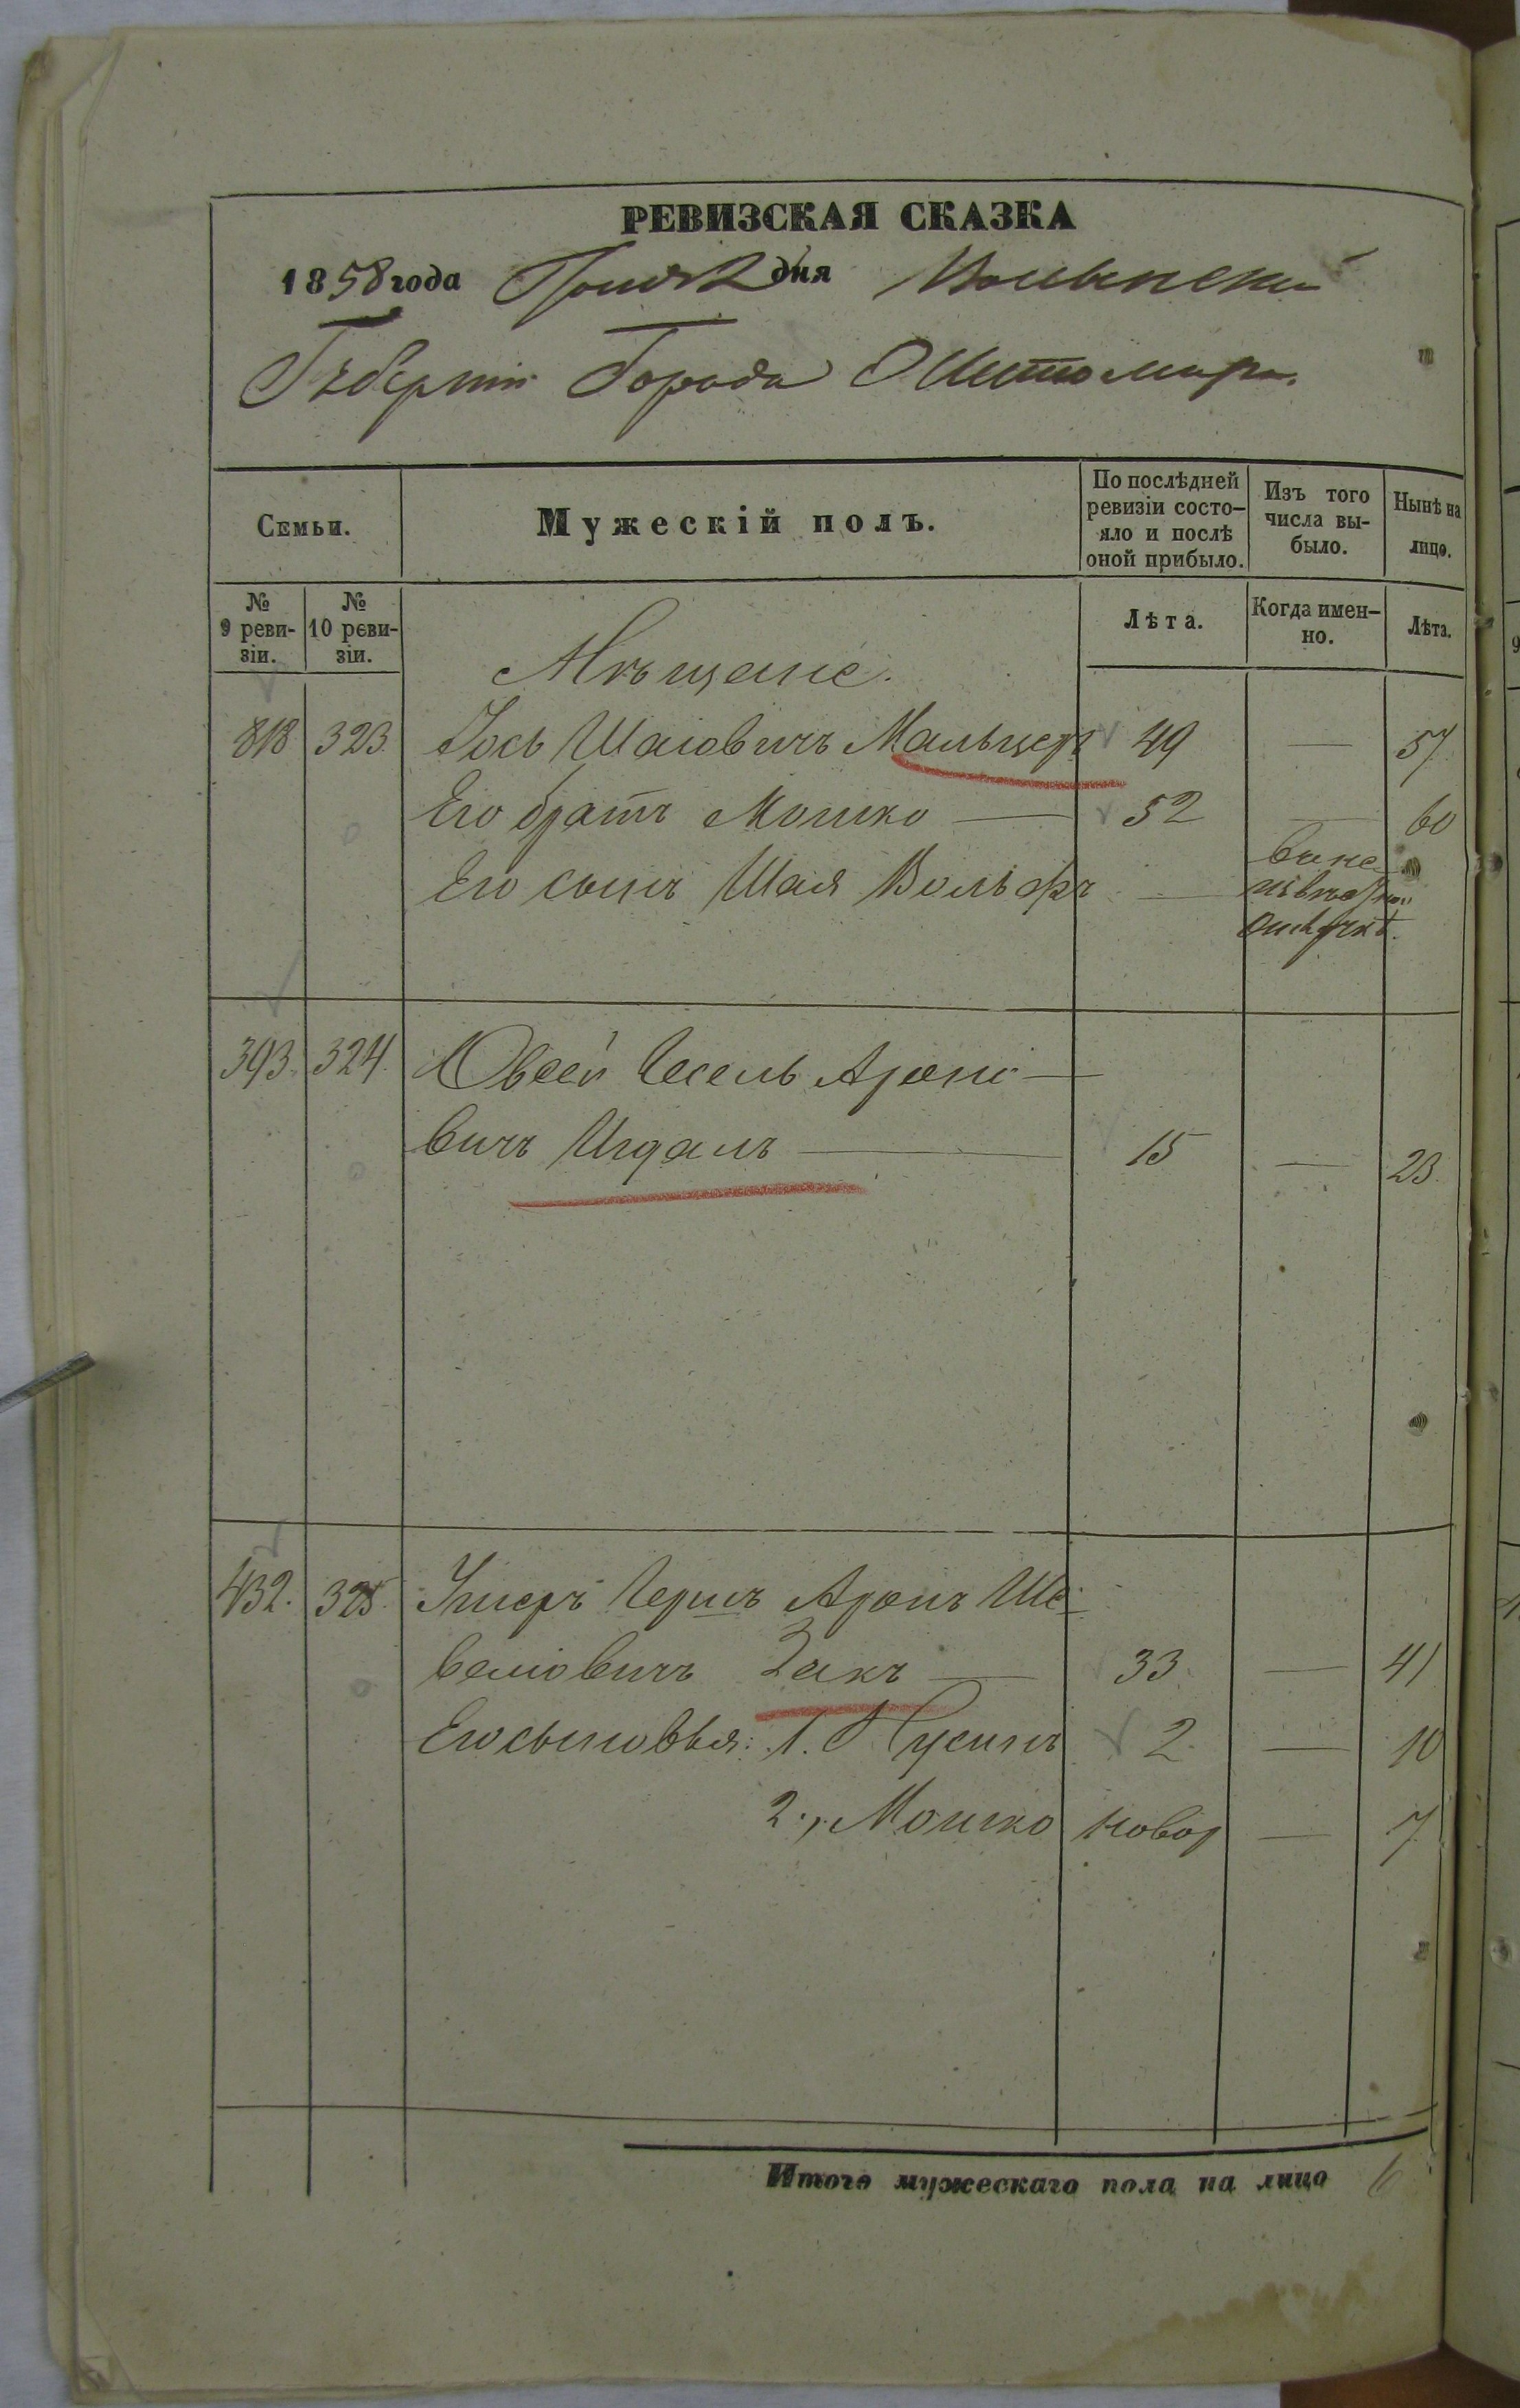 РЕВИЗСКАЯ СКАЗКА
1858 года Іюня 2 дня Волынской
Губерніи Города Житомира.
Семьи.
Мужескій полъ.
По послѣдней ревизіи состо-
яло и послѣ
оной прибыло.
Изъ того
числа вы-
было.
Нынѣ на
лицо.
№
9 реви-
зіи.
№
10 реви-
зіи.
Лѣта.
Когда имен-
но.
Лѣта.
Мѣщане.
818 323. Іось Шаіовичъ Мальцеръ 49 — 57
Его братъ Мошко — 52 — 60
Его сынъ Шая Вольфъ —
393. 324. Овсей Іесель Ароно-
вичъ Игдалъ — 15 — 23.
432. 325. Умеръ Герцъ Аронъ Ше-
веліовичъ Закъ — 33. — 41
Его сыновья: 1. Нусинъ 2. — 10
2., Мошко новор — 7
Итого мужескаго пола на лицо 6